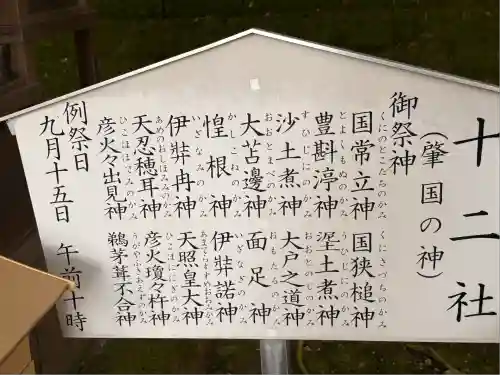 十二社
（肇国の神）
御祭神
国常立神 くにのとこたちのかみ
国狭槌神 くにさづちのかみ
豊斟渟神 とよくもぬのかみ
埿土煮神 うひじにのかみ
沙土煮神 すひじにのかみ
大戸之道神 おおとのじのかみ
大苫邊神 おおとまべのかみ
面足神 おもたるのかみ
惶根神 かしこねのかみ
伊弉諾神 いざなぎのかみ
伊弉冉神 いざなみのかみ
天照皇大神 あまてらすすめおおかみ
天忍穂耳神 あめのおしほみみのかみ
彦火瓊々杵神 ひこほににぎのかみ
彦火々出見神 ひこほほでみのかみ
鵜茅葺不合神 うがやふきあえずのかみ
例祭日
九月十五日 午前十時